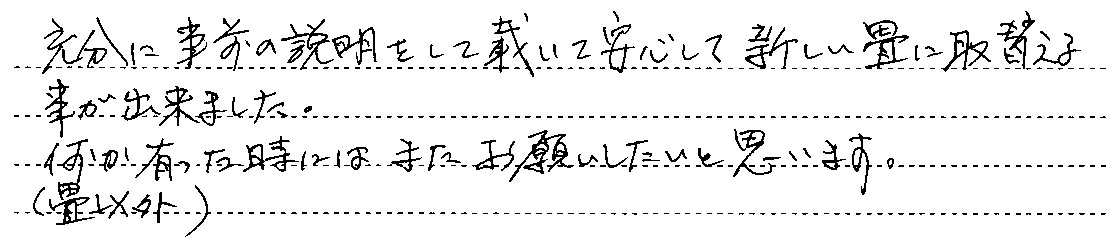 充分に事前の説明をして載いて安心して新しい畳に取替える
事が出来ました。
何か有った時にはまたお願いしたいと思います。
(畳以外)